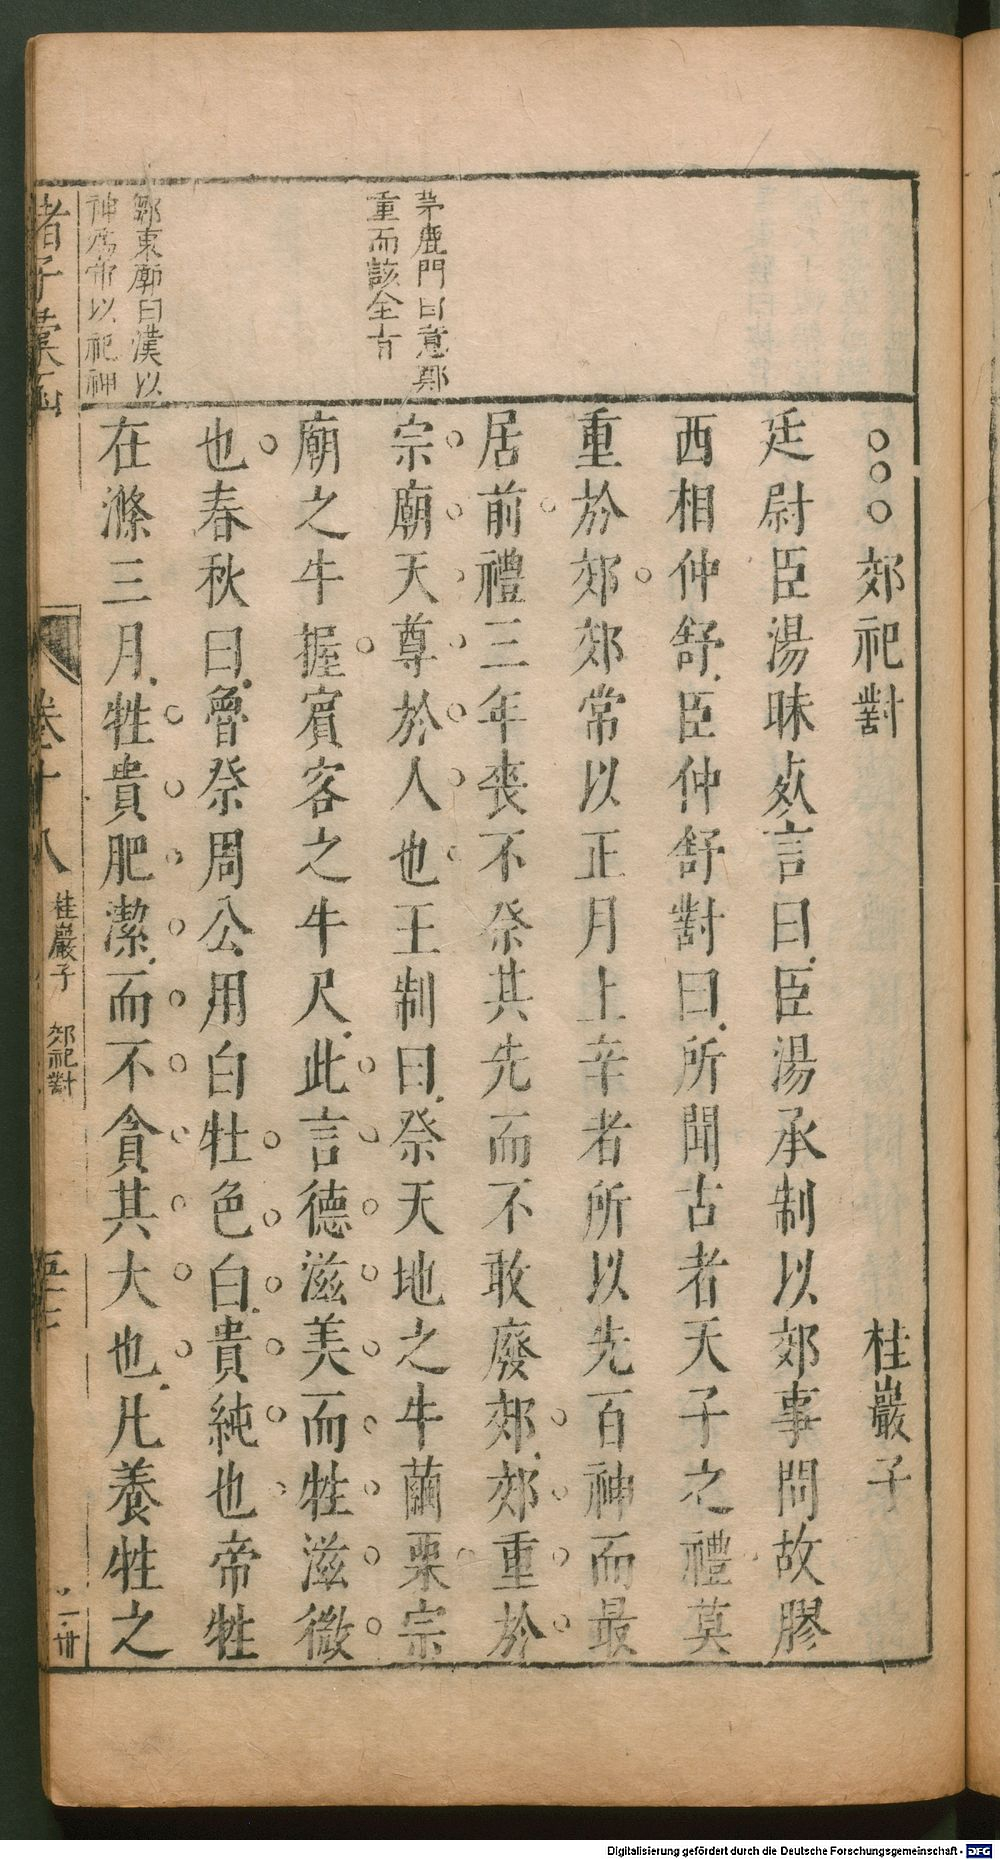 茅鹿門曰意鄭
重而該全古
鄒東廓曰漢以
神爲帝以祀神
○○○郊祀對 桂巖子
廷尉臣湯昧死言曰臣湯承制以郊事問故膠
西相仲舒臣仲舒對曰所聞古者天子之禮莫
重於郊郊常以正月上辛者所以先百神而最
居前禮三年喪不祭其先而不敢廢郊郊重於
宗廟天尊於人也王制曰祭天地之牛繭栗宗
廟之牛握賓客之牛尺此言德滋美而牲滋微
也春秋曰魯祭周公用白牡色白貴純也帝牲
在滌三月牲貴肥潔而不貪其大也凡養牲之
諸子彙函 卷十八 桂巖子 郊祀對
Digitalisierung gefördert durch die Deutsche Forschungsgemeinschaft - DFG